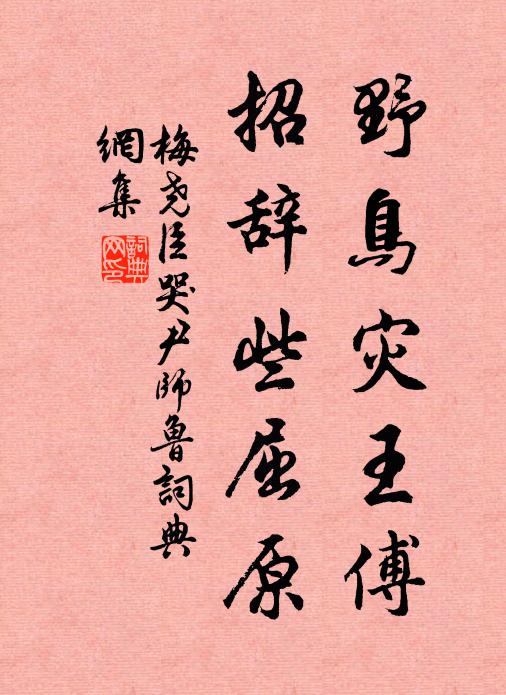 野鳥灾王傅
招辞些屈原
梅尧臣哭尹师鲁詞典
網集
詞典
网印